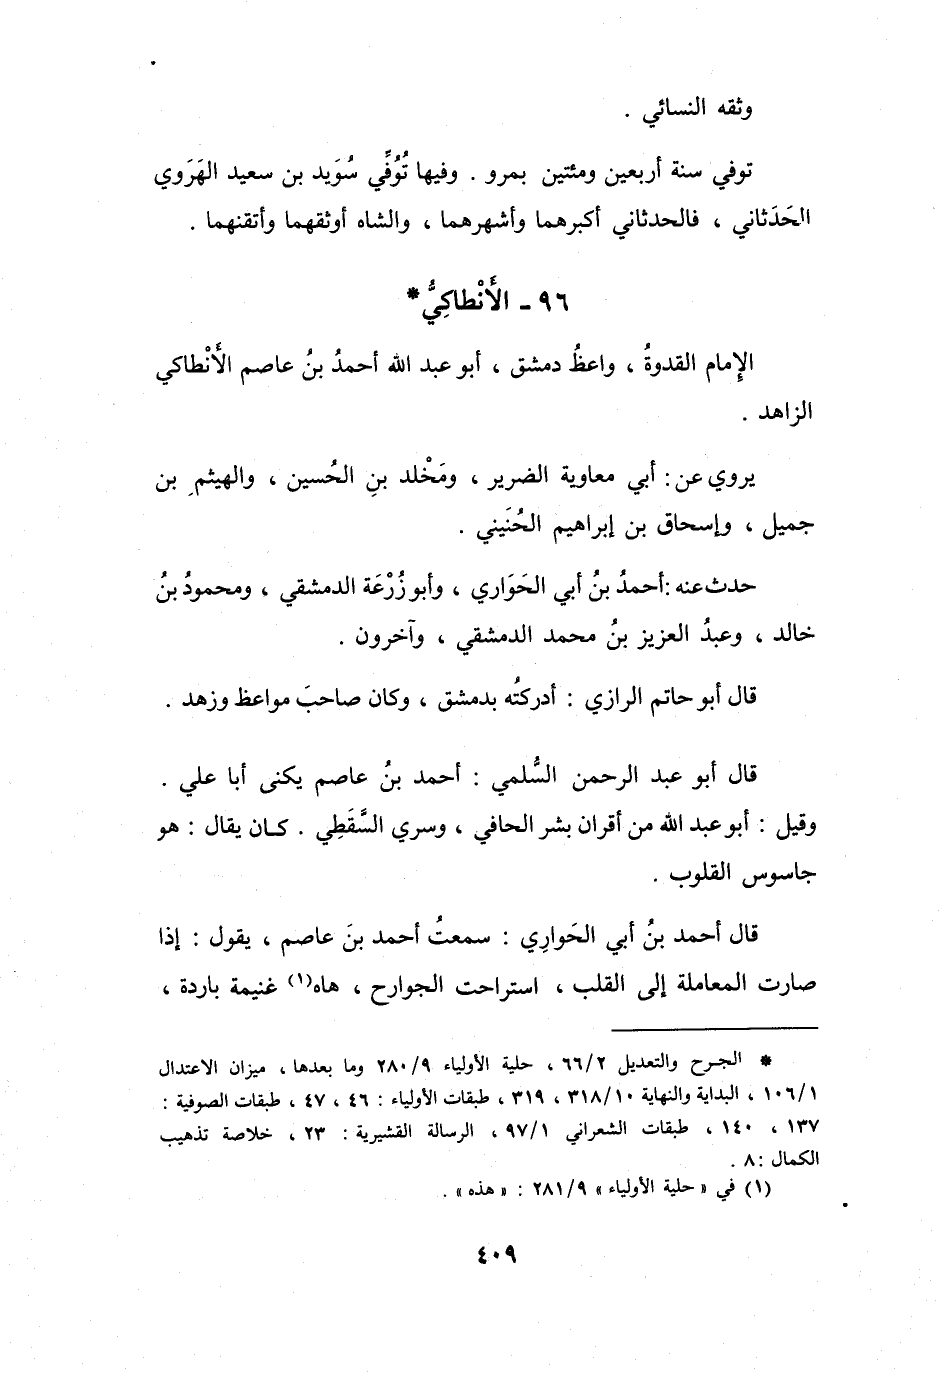 وثقه النسائي .
توفي سنة أربعين ومئتين بمرو . وفيها تُوُفِّي سُوَيد بن سعيد الهَرَوي
الحَدَثاني ، فالحدثاني أكبرهما وأشهرهما ، والشاه أوثقهما وأتقنهما .
٩٦ - الأَنْطاكِيُّ *
الإِمام القدوةُ ، واعظُ دمشق ، أبو عبد الله أحمدُ بنُ عاصم الأَنْطاكي
الزاهد .
يروي عن : أبي معاوية الضرير ، ومَخْلد بنِ الحُسين ، والهيثمِ بن
جميل ، وإسحاق بن إبراهيم الحُنَيني .
حدث عنه : أحمدُ بنُ أبي الحَوَاري ، وأبو زُرْعَة الدمشقي ، ومحمودُ بنُ
خالد ، وعبدُ العزيز بنُ محمد الدمشقي ، وآخرون .
قال أبو حاتم الرازي : أدركتُه بدمشق ، وكان صاحبَ مواعظ وزهد .
قال أبو عبد الرحمن السُّلمي : أحمد بنُ عاصم يكنى أبا علي .
وقيل : أبو عبد الله من أقران بشر الحافي ، وسري السَّقَطِي . كان يقال : هو
جاسوس القلوب .
قال أحمد بنُ أبي الحَوارِي : سمعتُ أحمد بنَ عاصم ، يقول : إذا
صارت المعاملة إلى القلب ، استراحت الجوارح ، هاه(١) غنيمة باردة ،
* الجرح والتعديل ٦٦/٢ ، حلية الأولياء ٢٨٠/٩ وما بعدها ، ميزان الاعتدال
١٠٦/١ ، البداية والنهاية ٣١٨/١٠ ، ٣١٩ ، طبقات الأولياء : ٤٦ ، ٤٧ ، طبقات الصوفية :
١٣٧ ، ١٤٠ ، طبقات الشعراني ٩٧/١ ، الرسالة القشيرية : ٢٣ ، خلاصة تذهيب
الكمال : ٨ .
(١) في « حلية الأولياء » ٢٨١/٩ : « هذه » .
٤٠٩